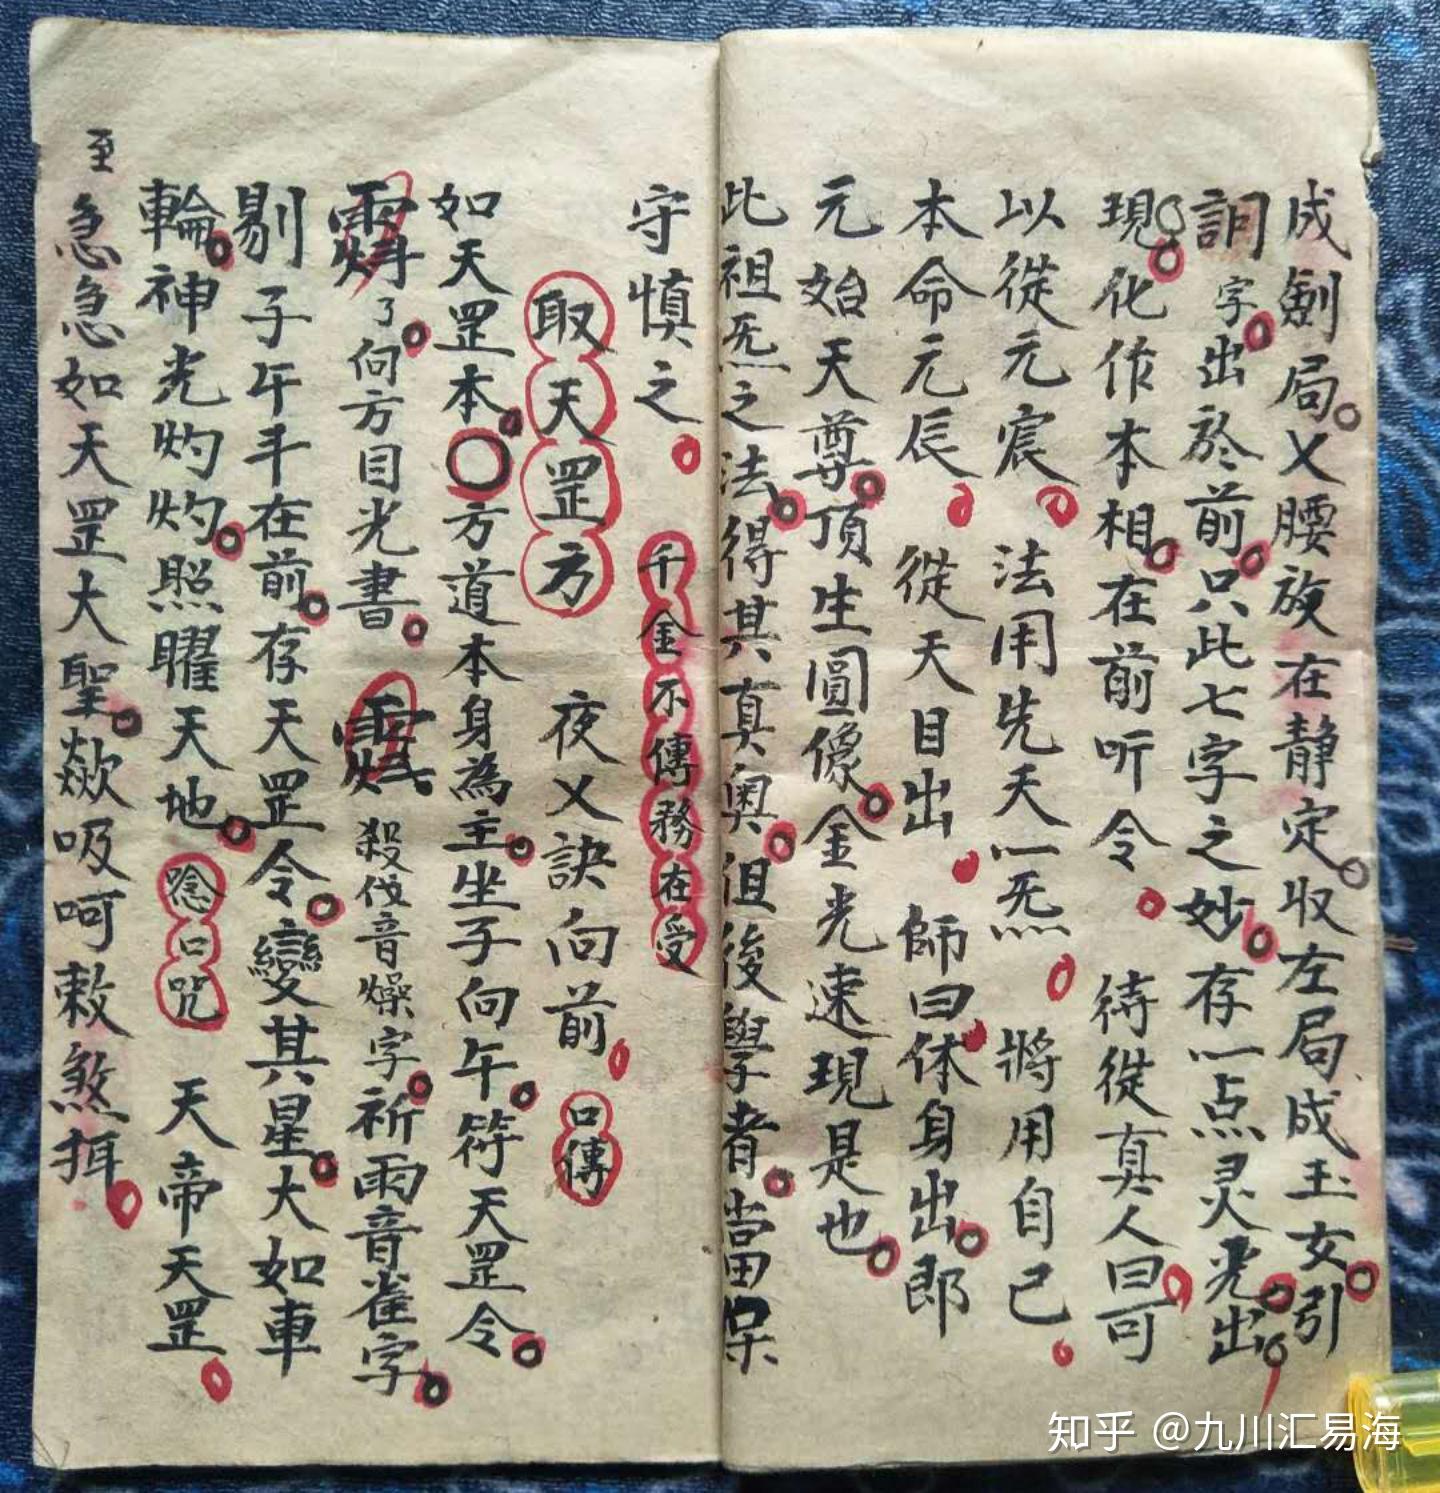 成劍局乂腰旋在静定收左局成玉女引
詞字出於前只此七字之妙存一点灵光出
現化作本相在前听令 待從真人曰可
以從元宸 法用先天一炁 將用自己
本命元辰 從天目出 師曰体身出郎
元始天尊頂生圓像金光速現是也
此祖炁之法得其真奥俎後學者當保
守慎之 千金不傳務在受
取天罡方 夜乂訣向前 口傳
如天罡本〇方道本身為主坐子向午符天罡令
了向方目光書 殺伐音燥字祈雨音雀字
剔子午斗在前存天罡令變其星大如車
輪神光灼灼照曜天地 唸口咒 天帝天罡
至急急如天罡大聖歘吸呵敕煞揖
知乎 @九川汇易海